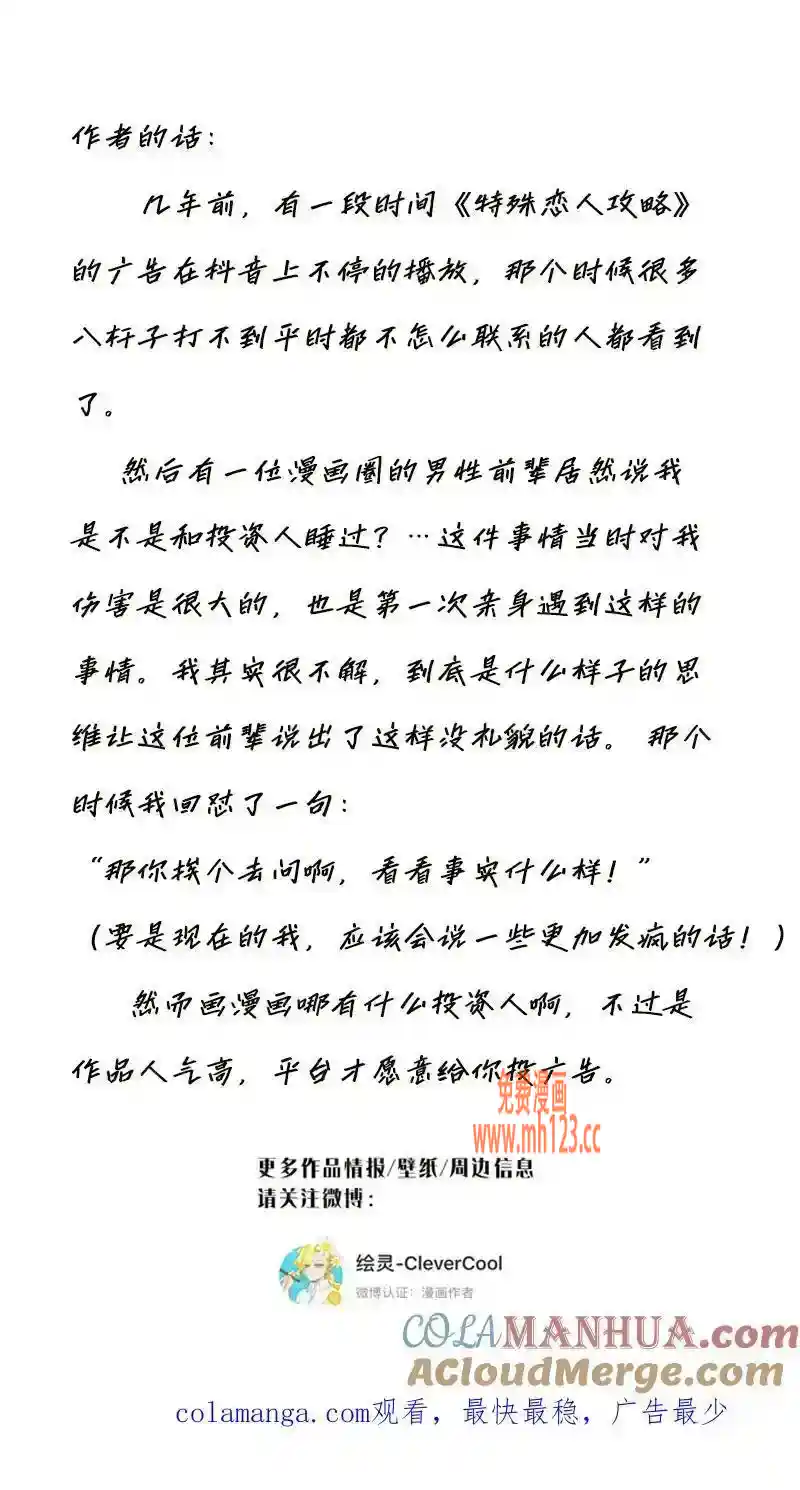 作者的话：
几年前，有一段时间《特殊恋人攻略》
的广告在抖音上不停的播放，那个时候很多
八杆子打不到平时都不怎么联系的人都看到
了。
然后有一位漫画圈的男性前辈居然说我
是不是和投资人睡过？…这件事情当时对我
伤害是很大的，也是第一次亲身遇到这样的
事情。我其实很不解，到底是什么样子的思
维让这位前辈说出了这样没礼貌的话。那个
时候我回怼了一句：
“那你挨个去问啊，看看事实什么样！”
（要是现在的我，应该会说一些更加发疯的话！）
然而画漫画哪有什么投资人啊，不过是
作品人气高，平台才愿意给你投广告。
免费漫画
www.mh123.cc
更多作品情报/壁纸/周边信息
请关注微博：
绘灵-CleverCool
微博认证：漫画作者
COLAMANHUA.com
ACloudMerge.com
colamanga.com观看，最快最稳，广告最少